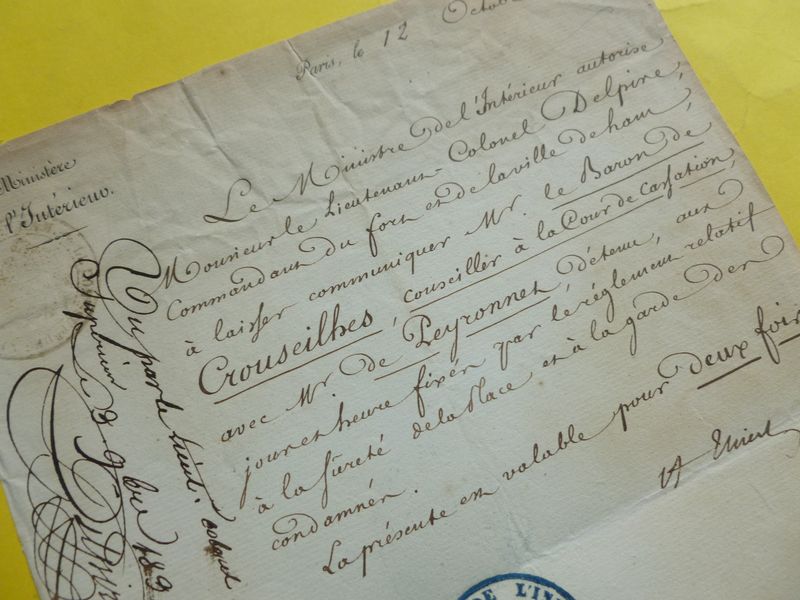 Paris, le 12 Octob
Ministère
l'Intérieur.
Le Ministre de l'Intérieur autorise
Monsieur le Lieutenant Colonel Delpire,
Commandant du fort et de la ville de ham,
à laisser communiquer Mr. le Baron de
Crouseilhes, conseiller à la Cour de Cassation,
avec Mr. de Peyronnet, détenu, aux
jour et heure fixés par le réglement relatif
à la sûreté de la Place et à la garde des
condamnés.
La présente est valable pour deux fois
A Thiers
Vu par le Lieut. colonel
DE L'IN